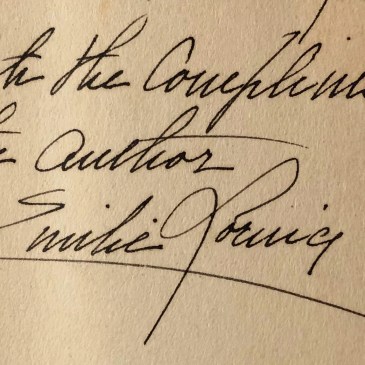 th the Complime
he author
Emilie Loring